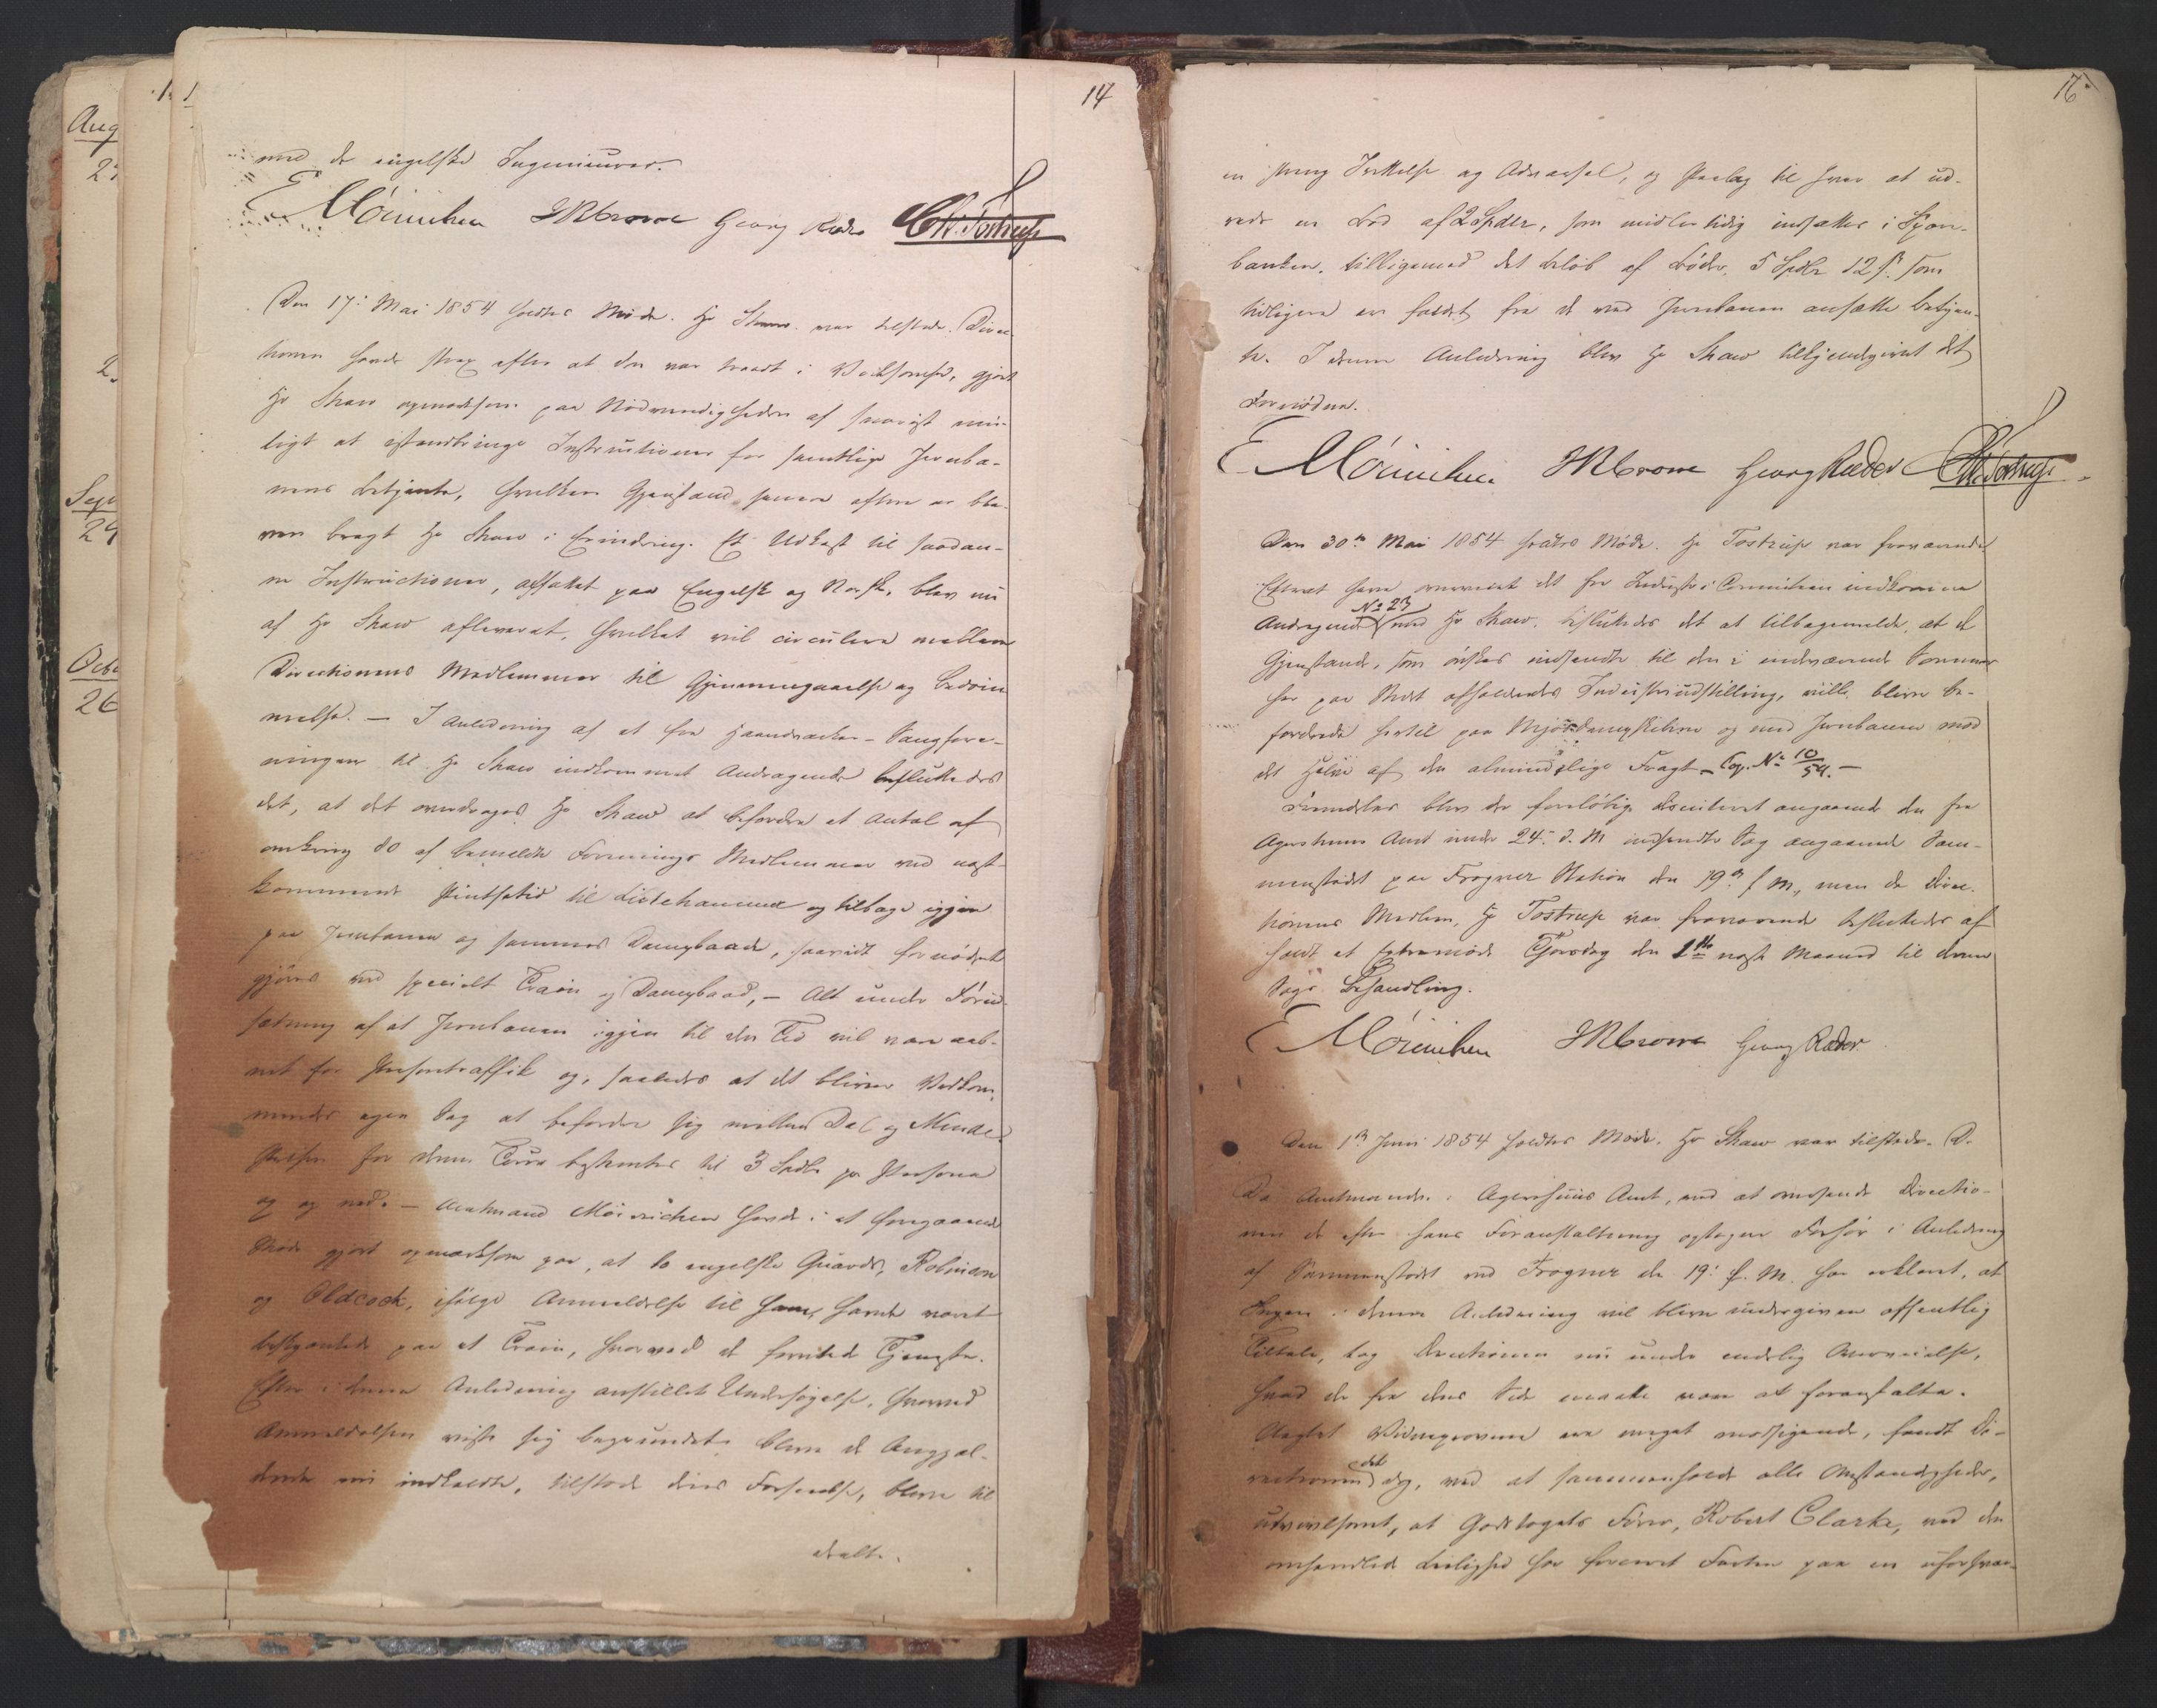 14
med de engelske Ingenieurer.
E Mörinichen JRCrowe Georg Ræder Chr. Tostrup
Den 17. Mai 1854 holdtes Möde. Hr Shaw var tilstede. Direc-
tionen havde strax efter at den var traadt i Virksomhed, gjort
Hr Shaw opmærksom paa Nødvendigheden af snarest mu-
ligt at istandbringe Instructioner for samtlige Jernba-
nens Betjente, hvilken Gjenstand senere oftere er ble-
ven bragt Hr Shaw i Erindring. Et Udkast til saadan-
ne Instructioner, affattet paa Engelsk og Norsk, blev nu
af Hr Shaw afleveret, hvilket vil circulere mellem
Directionens Medlemmer til Gjennemgaaelse og Bedöm-
melse. — I Anledning af et fra Haandværker-Sangfore-
ningen til Hr Shaw indkommet Andragende besluttedes
det, at det overdrages Hr Shaw at befordre et Antal af
omkring 80 af bemeldte Forenings Medlemmer ved næst-
kommende Pintsetid til Lillehammer og tilbage igjen
paa Jernbanen og sammes Dampbaade, saavidt fornödent
gjöres ved specielt Train og Dampbaad, — Alt under Forud-
sætning af at Jernbanen igjen til den Tid vil være aab-
net for Persontraffik og, saaledes at det bliver Vedkom-
mendes egen Sag at befordre sig mellem Dal og Minde.
Prisen for denne Tour bestemtes til 3 Spdlr pr Persona
op og ned. — Amtmand Mörinichen havde i et foregaaende
Möde gjort opmærksom paa, at to engelske Guards, Robinson
og Oldcock, ifölge Anmeldelse til ham, havde været
beskjænkede paa et Train, hvorved de forrettede Tjeneste.
Efter i denne Anledning anstillet Undersögelse, hvorved
Anmeldelsen viste sig begrundet, bleve de Angjæl-
dende nu indkaldte, tilstode deres Forseelse, bleve til-
deelte.
16
en streng Irettelse og Advarsel, og Paalæg til hver at ud-
rede en Bod af 2 Spdlr, som midlertidig indsættes i Spare-
banken, tilligemed det Belöb af Böder, 5 Spdlr 12 s. som
tidligere er faldet fra de ved Jernbanen ansatte Betjen-
te. I denne Anledning blev Hr Shaw tilkjendegivet det
Fornödne.
E Mörinichen JRCrowe Georg Ræder Chr. Tostrup
Den 30te Mai 1854 holdtes Möde. Hr Tostrup var fraværende
Efterat have overveiet det fra Industri-Comiteen indkomne
Andragende No 23 med Hr Shaw, besluttedes det at tilbagemelde, at de
Gjenstande, som önskes indsendte til den i indeværende Sommer
her paa Stedet afholdendes Industriudstilling, ville blive be-
fordrede hertil paa Mjös-Dampskibene og med Jernbanen mod
det Halve af den almindelige Fragt — Cop. No 10/54. —
Fremdeles blev der foreløbig discuteret angaaende den fra
Agershuus Amt under 24. d. M indsendte Sag angaaende Sam-
menstödet paa Frogner Station den 19de f M, men da Direc-
tionens Medlem, Hr Tostrup var fraværende besluttedes af-
holdt et Extramöde Torsdag den 1ste næste Maaned til denne
Sags Behandling.
E Mörinichen JRCrowe Georg Ræder
Den 1ste Juni 1854 holdtes Möde. Hr Shaw var tilstede. D.
Da Amtmanden i Agershuus Amt, ved at oversende Directio-
nen de efter hans Foranstaltning optagne Forhör i Anledning
af Sammenstödet ved Frogner den 19. f. M. har erklæret, at
Ingen i denne Anledning vil blive undergiven offentlig
Tiltale, tog Directionen nu under endelig Overveielse,
hvad der fra dens Side maatte være at foranstalte.
Uagtet Vidneprovene ere meget modsigende, fandt Di-
rectionen det dog, ved at sammenholde alle Omstændigheder,
utvivlsomt, at Godstogets Förer, Robert Clarke, ved den
omhandlede Leilighed har foreenet Farten paa en uforsvar-